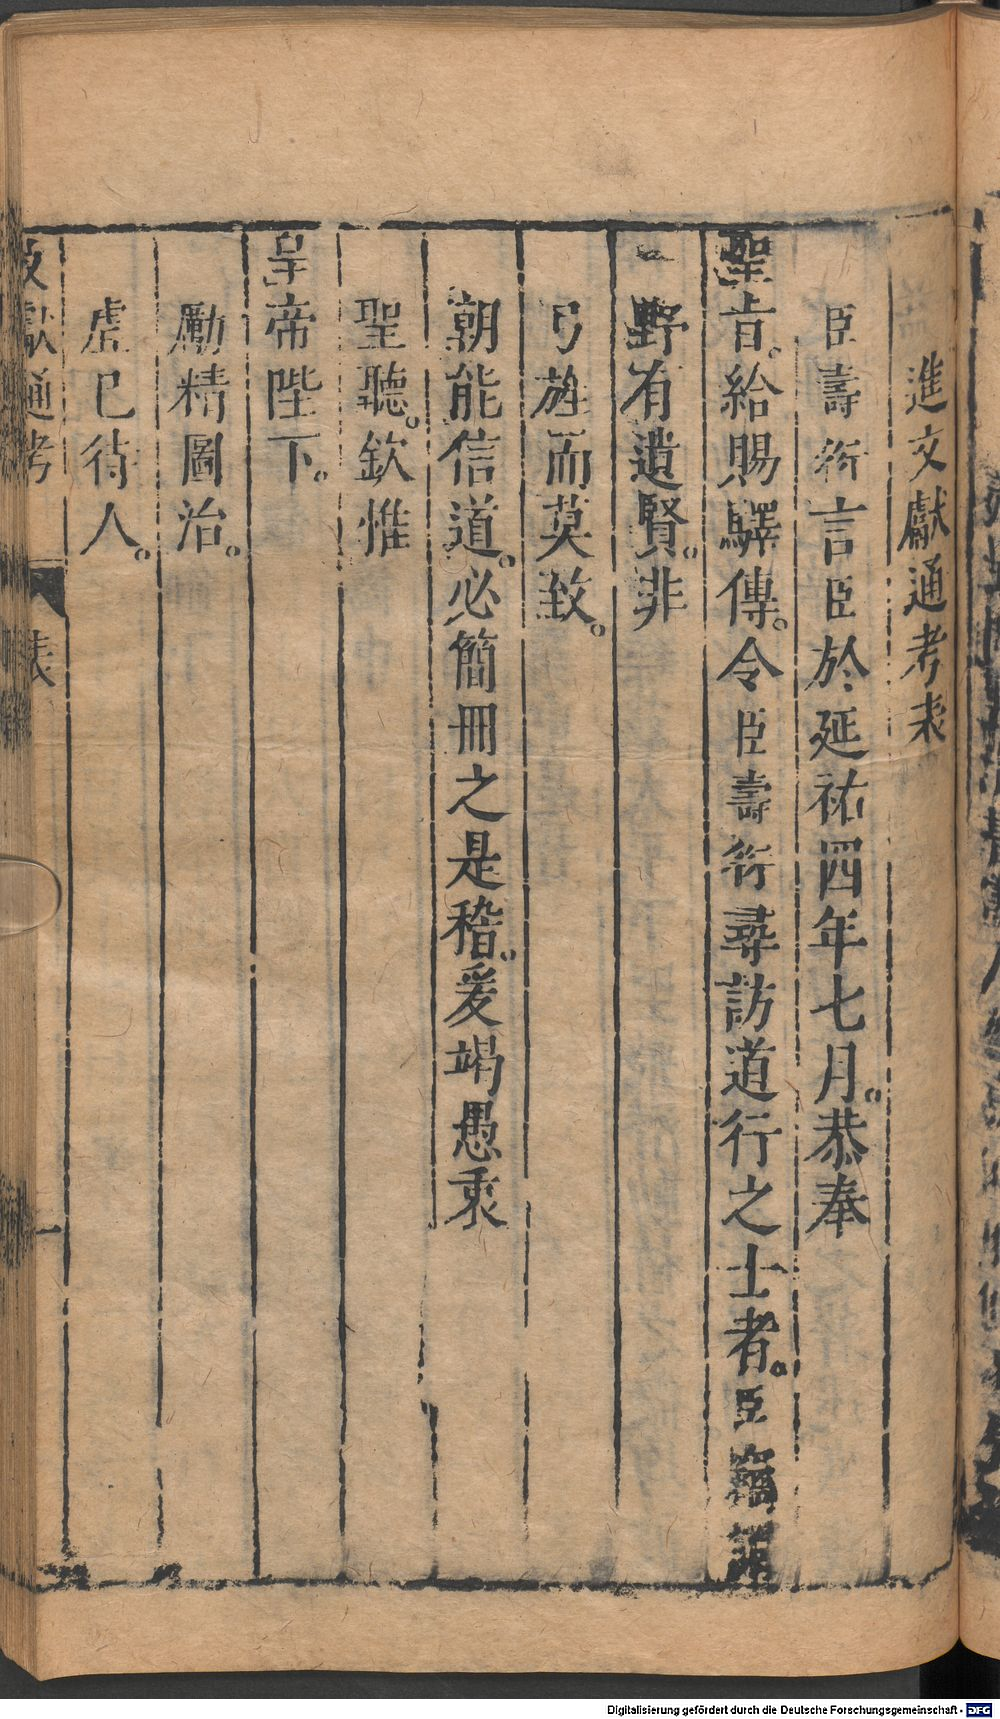 進文獻通考表
臣壽衍言臣於延祐四年七月。恭奉
聖旨。給賜驛傳。令臣壽衍尋訪道行之士者。臣竊謂
野有遺賢。非
弓旌而莫致。
朝能信道。必簡冊之是稽。爰竭愚衷
聖聽。欽惟
皇帝陛下。
勵精圖治。
虛已待人。
文獻通考 表 一
Digitalisierung gefördert durch die Deutsche Forschungsgemeinschaft - DFG